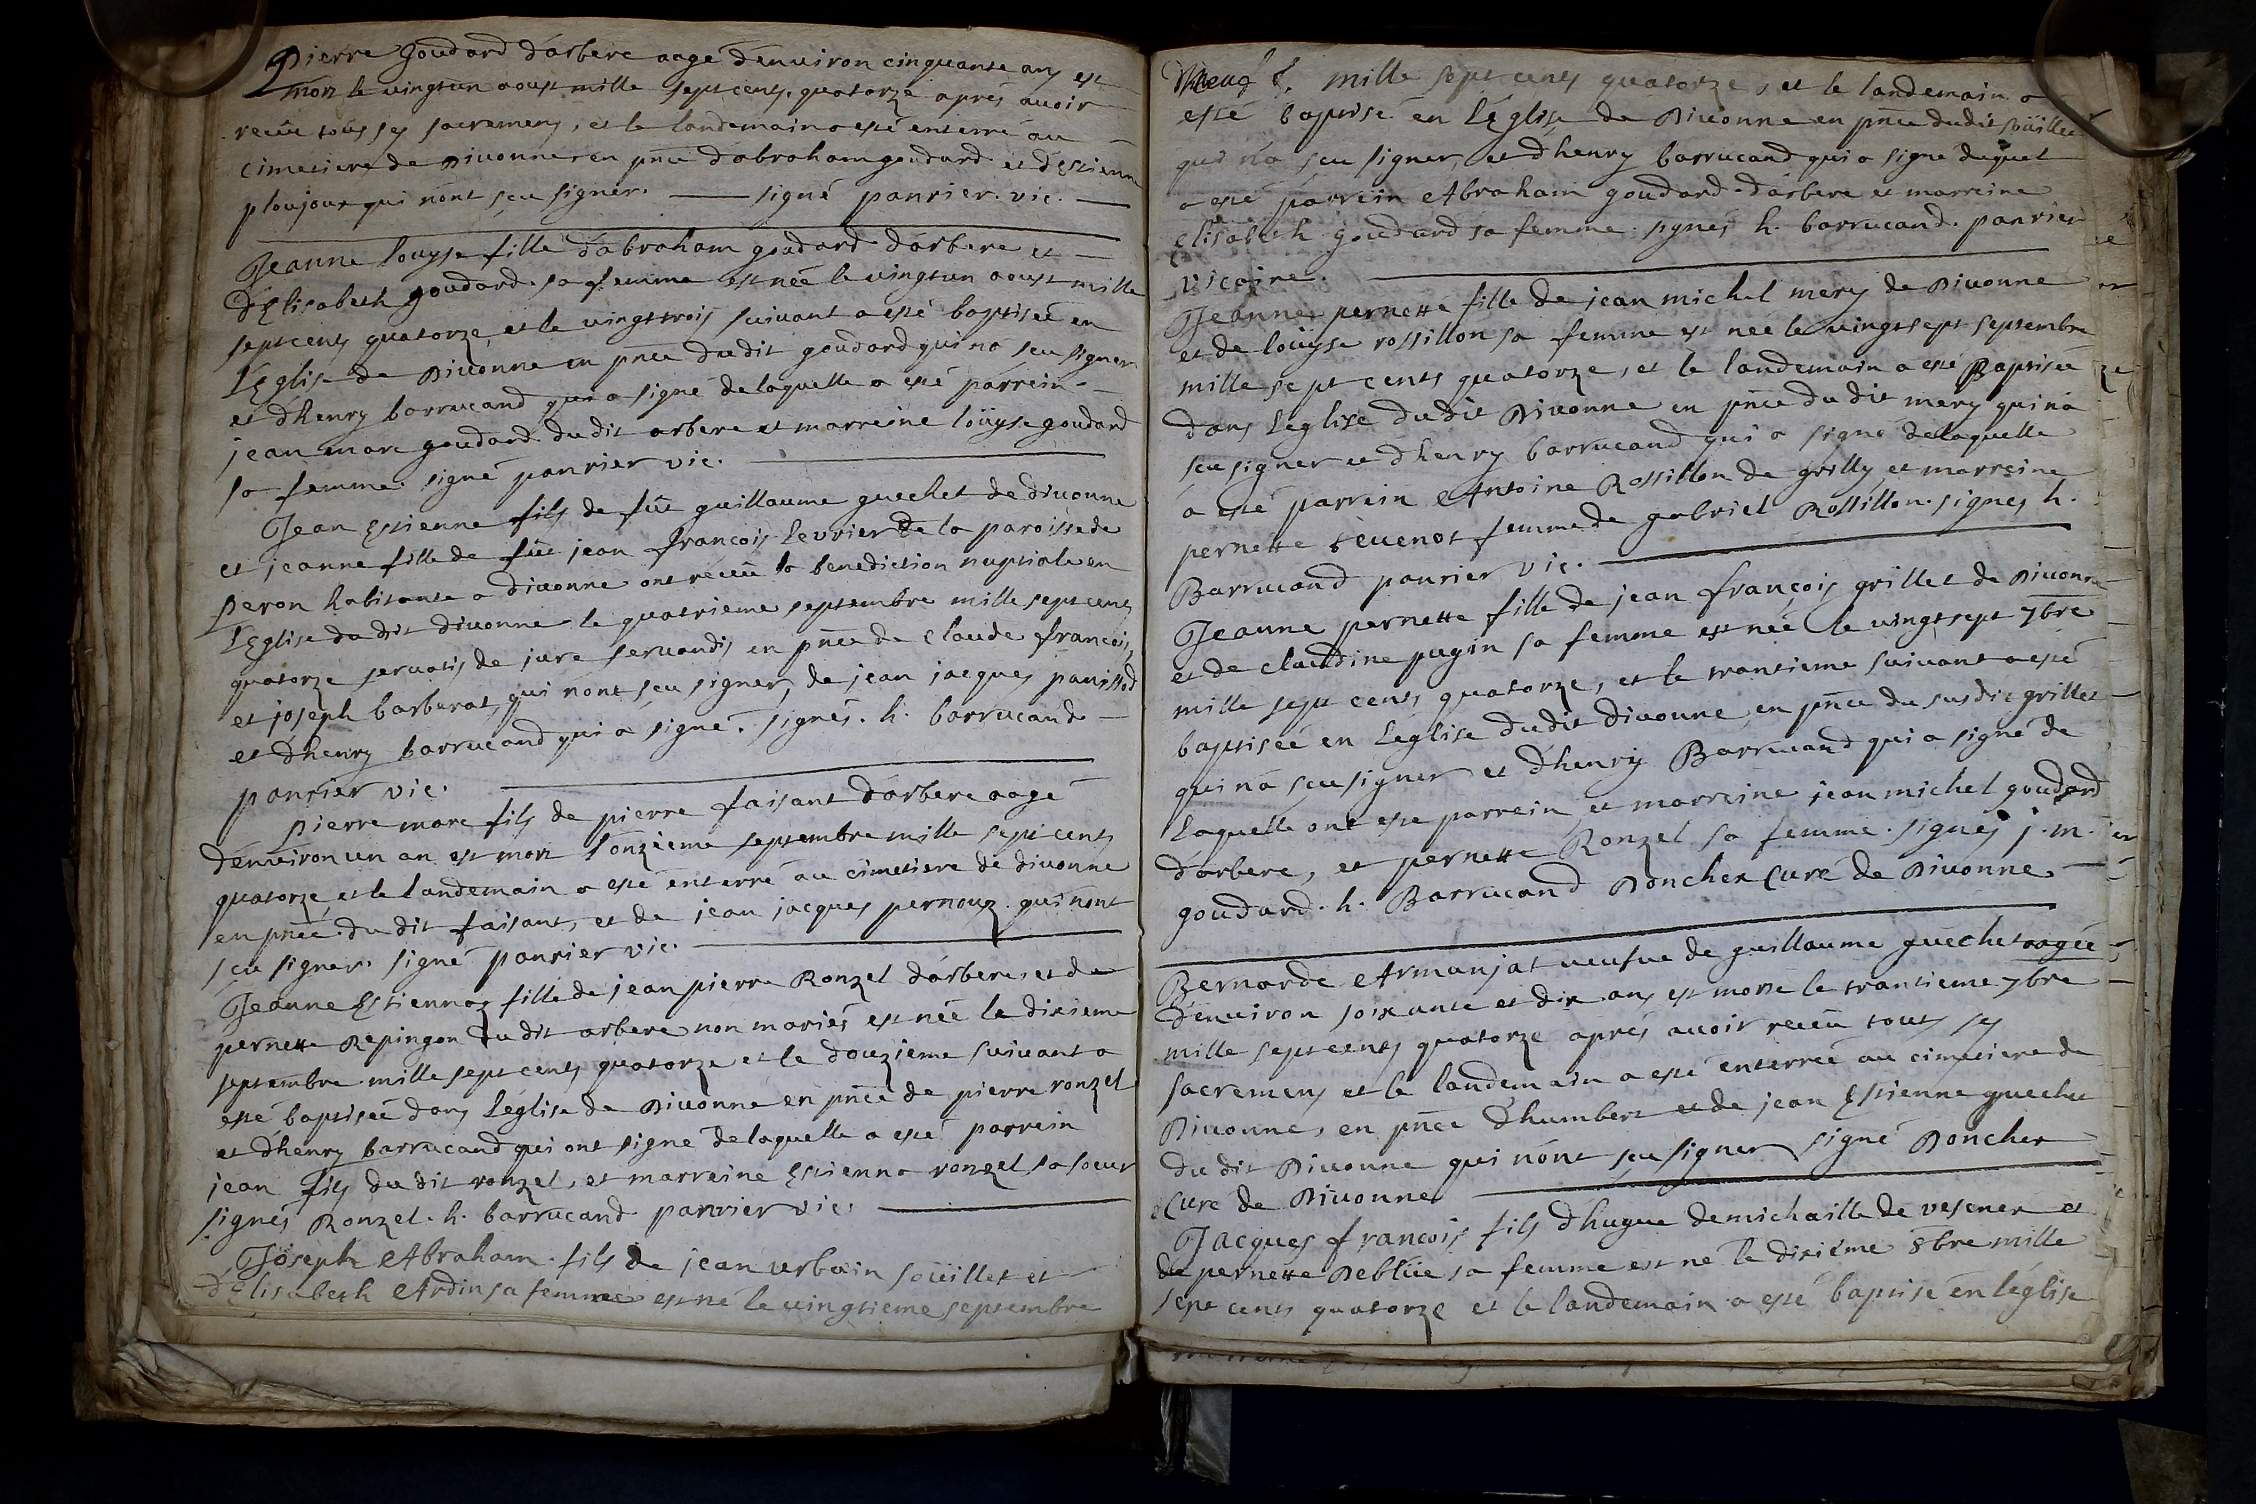 Pierre goudard d'arbere aagé d'environ cinquante ans est
mort le vingtun aoust mille sept cents quatorze aprés avoir
receü tous ses sacremens, et le landemain a esté enterré au
cimetiere de Divonne en pnce d'abraham goudard et d'Estienne
ploujoux qui n'ont sçeu signer. signé panrier. vic.
Jeanne louyse fille d'abraham goudard d'arbere et
d'Elisabeth goudard sa femme est née le vingtun aoust mille
sept cents quatorze, et le vingt trois suivant a esté baptisée en
L'Eglise de Divonne en pnce du dit goudard qui na sceu signer
et d'henry barrucand qui a signé de laquelle a esté parrein
jean marc goudard du dit arbere et marreine loüyse goudard
sa femme. signé panrier vic.
Jean Estienne fils de fût guillaume guechet de divonne
et jeanne fille de fût jean françois levrier de la paroisse de
Peron habitante a divonne ont receü la benediction nuptiale en
L'Eglise du dit divonne le quatrieme septembre mille sept cents
quatorze servatis de jure servandis en pnce de claude françois,
et joseph barberat, qui n'ont sçeu signer, de jean jacques panissod
et d'henry barrucand qui a signé. signés. h. barrucand
panrier vic.
Pierre marc fils de pierre faisant d'arbere aagé
d'environ un an est mort l'onzieme septembre mille sept cents
quatorze, et le landemain a esté enterré au cimetiere de divonne
en pnce du dit faisant, et de jean jacques pernoux qui n'ont
sçeu signer. signé panrier vic.
Jeanne Estiennaz fille de jean pierre Ronzel d'arbere et de
pernette Repingon du dit arbere non mariés est née le dixieme
septembre mille sept cents quatorze et le douzieme suivant a
esté baptisée dans l'eglise de Divonne en pnce de pierre ronzel
et d'henry barrucand qui ont signé de laquelle a esté parrein
jean fils du dit ronzel, et marreine Estienna ronzel sa soeur
signés Ronzel. h. barrucand panrier vic.
Joseph Abraham fils de jean urbain soüillet et
d'Elisabeth Ardin sa femme est né le vingtieme septembre
mille sept cents quatorze, et le landemain a
esté baptisé en L'Eglise de Divonne en pnce dudit soüillet
qui n'a sçeu signer, et d'henry barrucand qui a signé duquel
a esté parrein Abraham goudard d'arbere et marreine
Elisabeth goudard sa femme. sgnés h. barrucand. panrier
vicaire.
Jeanne pernette fille de jean michel mery de Divonne
et de loüyse rossillon sa femme est née le vingtsept septembre
mille sept cents quatorze, et le landemain a esté Baptisée
dans L'eglise dudit Divonne en pnce du dit mery qui n'a
sçeu signer et d'henry barrucand qui a signé de laquelle
a esté parrein Antoine Rossillon de grilly, et marreine
pernette tevenot femme de gabriel Rossillon. signes h.
Barrucand panrier vic.
Jeanne pernette fille de jean françois grillet de Divonne
et de claudine pugin sa femme est née le vingt sept 7bre
mille sept cents quatorze, et le trantieme suivant a esté
baptisée en L'eglise dudit divonne, en pnce du susdit grillet
qui na sceu signer et d'henry Barrucand qui a signé de
Laquelle ont esté parrein et marreine jean michel goudard
d'arbere, et pernette Ronzel sa femme. signés j. m.
goudard. h. Barrucand Doncher Curé de Divonne
Bernarde Armanjat veufve de guillaume guechet aagée
d'environ soixante et dix ans est morte le trantieme 7bre
mille sept cents quatorze aprés avoir receü touts ses
sacremens et le landemain a esté enterrée au cimetiere de
Divonne, en pnce d'humbert et de jean Estienne guechet
du dit Divonne qui n'ont sçeu signer signé Doncher
Curé de Divonne
Jacques françois fils d'hugue demichaille de vesenex et
de pernette Deblüe sa femme est né le dixiéme 8bre mille
sept cents quatorze et le landemain a esté baptisé en léglise